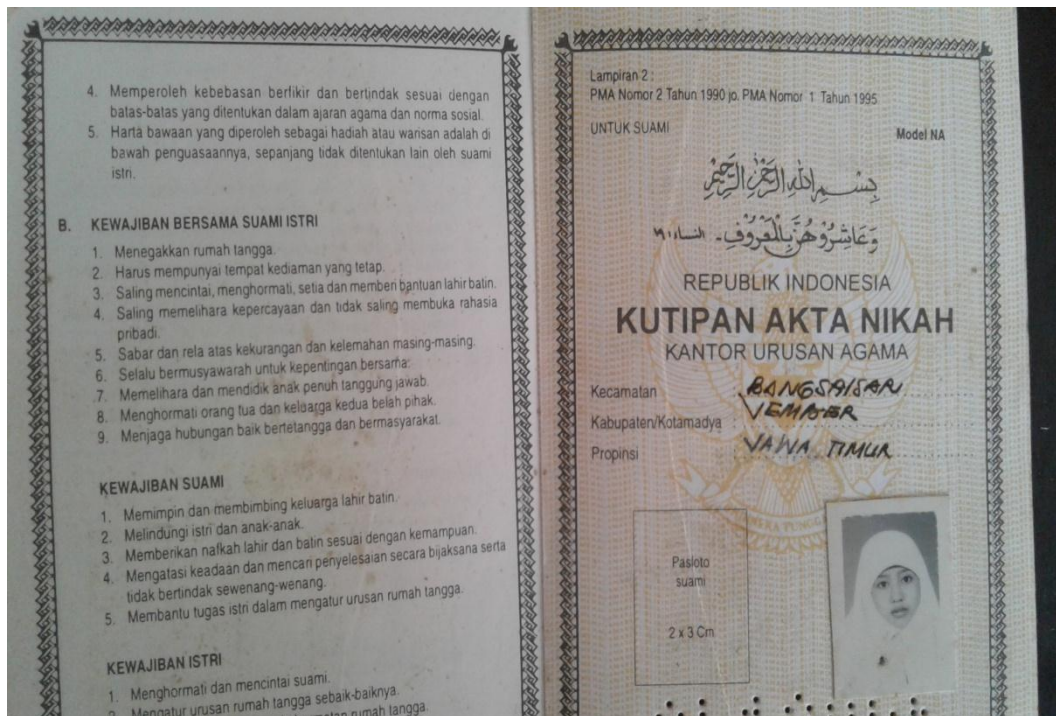 4. Memperoleh kebebasan berfikir dan bertindak sesuai dengan
batas-batas yang ditentukan dalam ajaran agama dan norma sosial.
5. Harta bawaan yang diperoleh sebagai hadiah atau warisan adalah di
bawah penguasaannya, sepanjang tidak ditentukan lain oleh suami
istri.
B. KEWAJIBAN BERSAMA SUAMI ISTRI
1. Menegakkan rumah tangga.
2. Harus mempunyai tempat kediaman yang tetap.
3. Saling mencintai, menghormati, setia dan memberi bantuan lahir batin.
4. Saling memelihara kepercayaan dan tidak saling membuka rahasia
pribadi.
5. Sabar dan rela atas kekurangan dan kelemahan masing-masing.
6. Selalu bermusyawarah untuk kepentingan bersama.
7. Memelihara dan mendidik anak penuh tanggung jawab.
8. Menghormati orang tua dan keluarga kedua belah pihak.
9. Menjaga hubungan baik bertetangga dan bermasyarakat.
KEWAJIBAN SUAMI
1. Memimpin dan membimbing keluarga lahir batin.
2. Melindungi istri dan anak-anak.
3. Memberikan nafkah lahir dan batin sesuai dengan kemampuan.
4. Mengatasi keadaan dan mencari penyelesaian secara bijaksana serta
tidak bertindak sewenang-wenang.
5. Membantu tugas istri dalam mengatur urusan rumah tangga.
KEWAJIBAN ISTRI
1. Menghormati dan mencintai suami.
Mengatur urusan rumah tangga sebaik-baiknya.
rumah tangga.
Lampiran 2 :
PMA Nomor 2 Tahun 1990 jo. PMA Nomor 1 Tahun 1995
UNTUK SUAMI
Model NA
بِسْمِ اللهِ الرَّحْمٰنِ الرَّحِيْمِ
وَعَاشِرُوْهُنَّ بِالْمَعْرُوْفِ - النساء ١٩
REPUBLIK INDONESIA
KUTIPAN AKTA NIKAH
KANTOR URUSAN AGAMA
Kecamatan BANGSALSARI
Kabupaten/Kotamadya : JEMBER
Propinsi : JAWA TIMUR
Pasfoto
suami
2 x 3 Cm